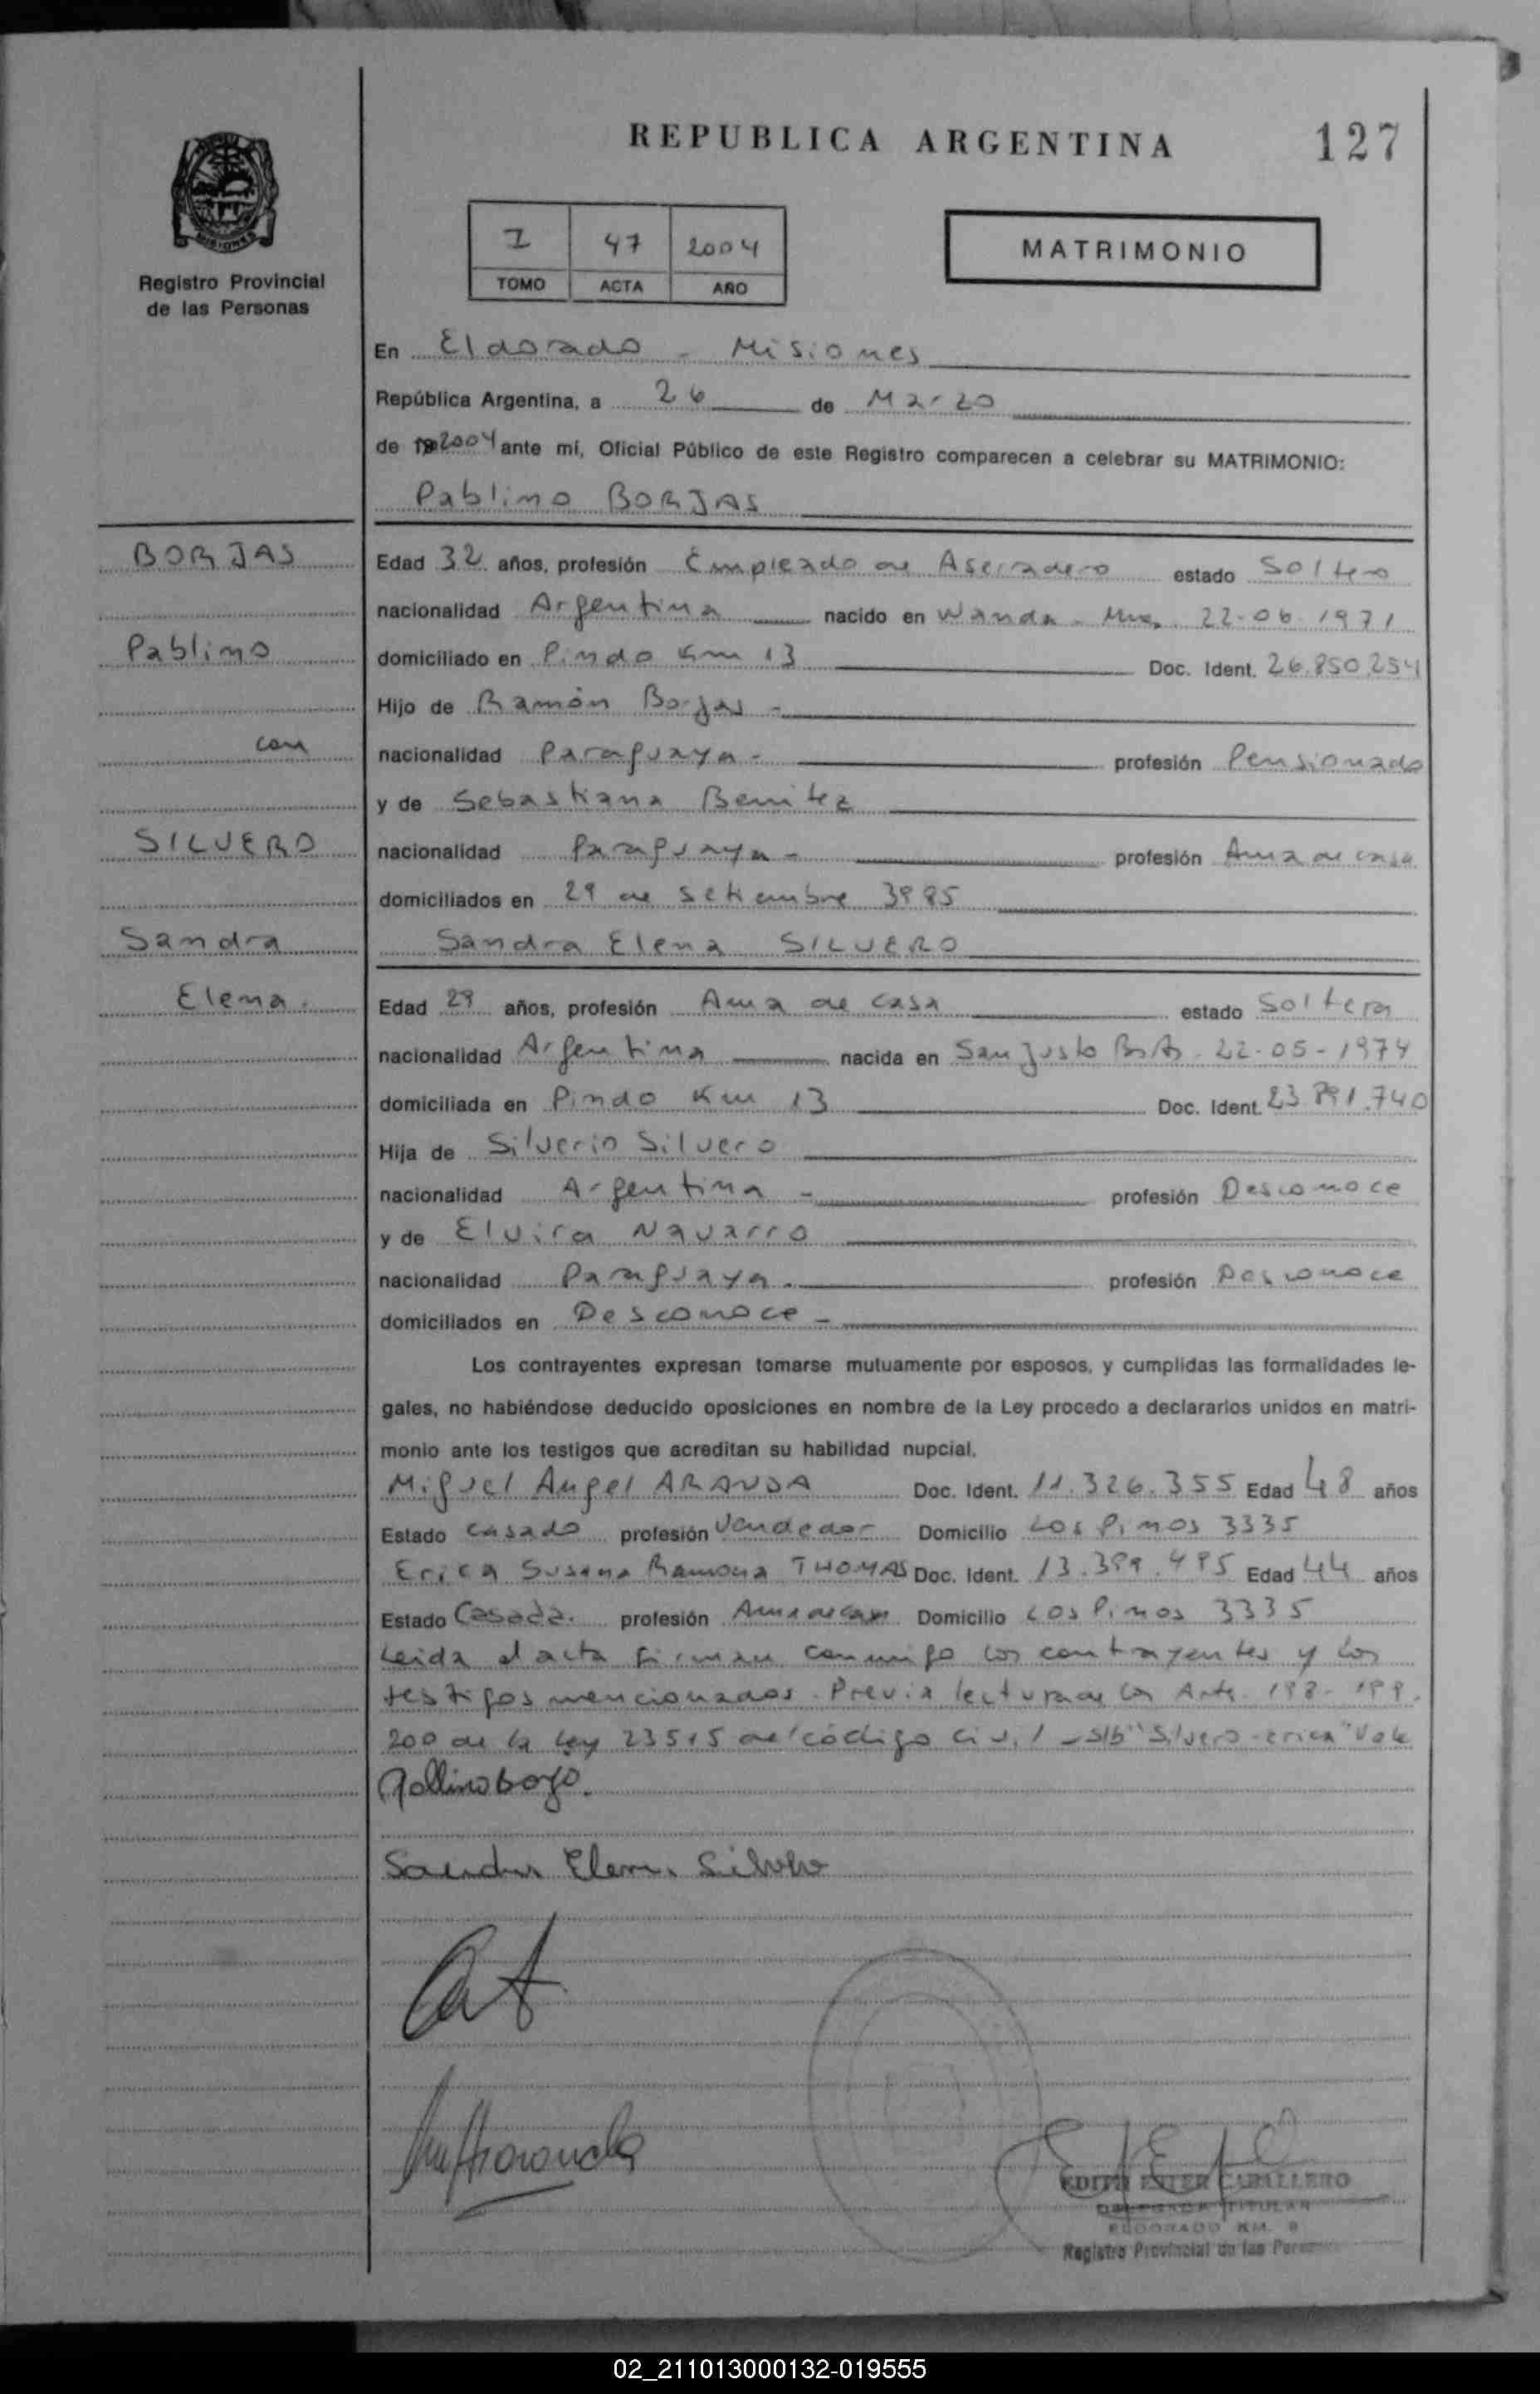 REPUBLICA ARGENTINA
127
MISIONES
Registro Provincial
de las Personas
I 47 2004
TOMO ACTA AÑO
MATRIMONIO
En Eldorado - Misiones
República Argentina, a 26 de Marzo
de 2004 ante mí, Oficial Público de este Registro comparecen a celebrar su MATRIMONIO:
Pablino BORJAS
BORJAS
Pablino
con
SILVERO
Sandra
Elena.
Edad 32 años, profesión Empleado de Aserradero estado Soltero
nacionalidad Argentina nacido en Wanda - Mnes. 22-06-1971
domiciliado en Pindo Km 13 Doc. Ident. 26.850.254
Hijo de Ramón Borjas -
nacionalidad Paraguaya - profesión Pensionado
y de Sebastiana Benitez
nacionalidad Paraguaya - profesión Ama de casa
domiciliados en 29 de Setiembre 3985
Sandra Elena SILVERO
Edad 29 años, profesión Ama de casa estado Soltera
nacionalidad Argentina nacida en San Justo Bs As. 22-05-1974
domiciliada en Pindo Km 13 Doc. Ident. 23.891.740
Hija de Silverio Silvero
nacionalidad Argentina - profesión Desconoce
y de Elvira Navarro
nacionalidad Paraguaya - profesión Desconoce
domiciliados en Desconoce -
Los contrayentes expresan tomarse mutuamente por esposos, y cumplidas las formalidades le-
gales, no habiéndose deducido oposiciones en nombre de la Ley procedo a declararlos unidos en matri-
monio ante los testigos que acreditan su habilidad nupcial.
Miguel Angel ARANDA Doc. Ident. 11.326.355 Edad 48 años
Estado Casado profesión Vendedor Domicilio Los Pinos 3335
Erica Susana Ramona THOMAS Doc. Ident. 13.399.495 Edad 44 años
Estado Casada. profesión Ama de casa Domicilio Los Pinos 3335
Leida el acta firman conmigo los contrayentes y los
testigos mencionados. Previa lectura de los Arts. 198-199.
200 de la Ley 23515 del código Civil - S/b "Silvero-erica" Vale
Sandra Elena Silvero
EDITH ESTER CABALLERO
DELEGADA TITULAR
ELDORADO KM. 9
Registro Provincial de las Personas
02_211013000132-019555